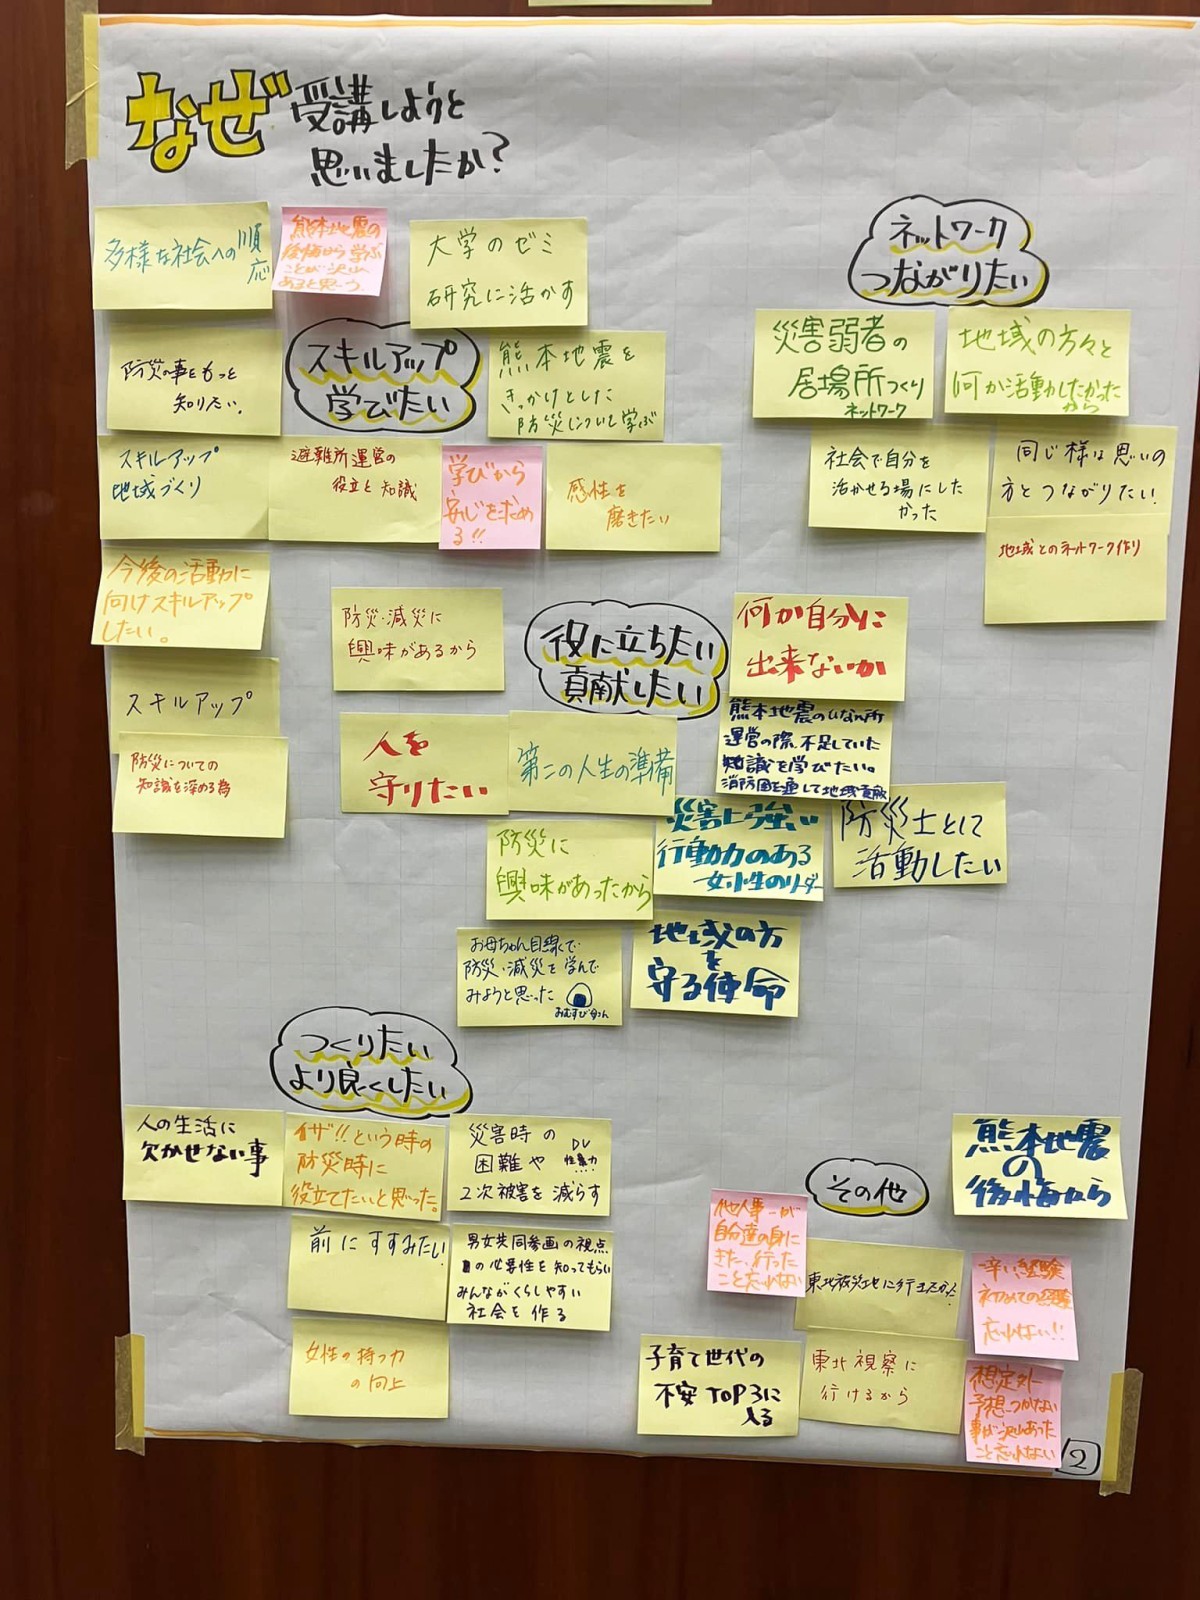 なぜ受講しようと
思いましたか?
多様な社会への順
応
熊本地震の
後悔から学ぶ
ことが沢山
あると思う
大学のゼミ
研究に活かす
防災の事をもっと
知りたい。
スキルアップ
学びたい
熊本地震を
きっかけとした
防災について学ぶ
スキルアップ
地域づくり
避難所運営の
役立と知識
学びから
安心を求め
る!!
感性を
磨きたい
今後の活動に
向けスキルアップ
したい。
スキルアップ
防災についての
知識を深める為
ネットワーク
つながりたい
災害弱者の
居場所づくり
ネットワーク
地域の方々と
何か活動したかった
から
社会で自分を
活かせる場にした
かった
同じ様な思いの
方とつながりたい!
地域とのネットワーク作り
防災・減災に
興味があるから
役に立ちたい
貢献したい
何か自分に
出来ないか
人を
守りたい
第二の人生の準備
熊本地震のひなん所
運営の際、不足していた
知識を学びたい。
消防団を通して地域貢献
防災に
興味があったから
災害に強い
行動力のある
女性のリーダー
防災士として
活動したい
お母ちゃん目線で
防災・減災を学んで
みようと思った
地域の方
を
守る使命
つくりたい
より良くしたい
人の生活に
欠かせない事
イザ!!という時の
防災時に
役立てたいと思った。
災害時の
困難や DV
性暴力
2次被害を減らす
前にすすみたい!
男女共同参画の視点
の必要性を知ってもらい
みんながくらしやすい
社会を作る
女性の持つ力
の向上
その他
熊本地震
の
後悔から
他人事…が
自分達の身に
きた、行った
こと忘れない
東北被災地に行きたかった
辛い経験
初めての経験
忘れない!!
子育て世代の
不安TOP3に
入る
東北視察に
行けるから
想定外
予想つかない
事が沢山あった
こと忘れない
2